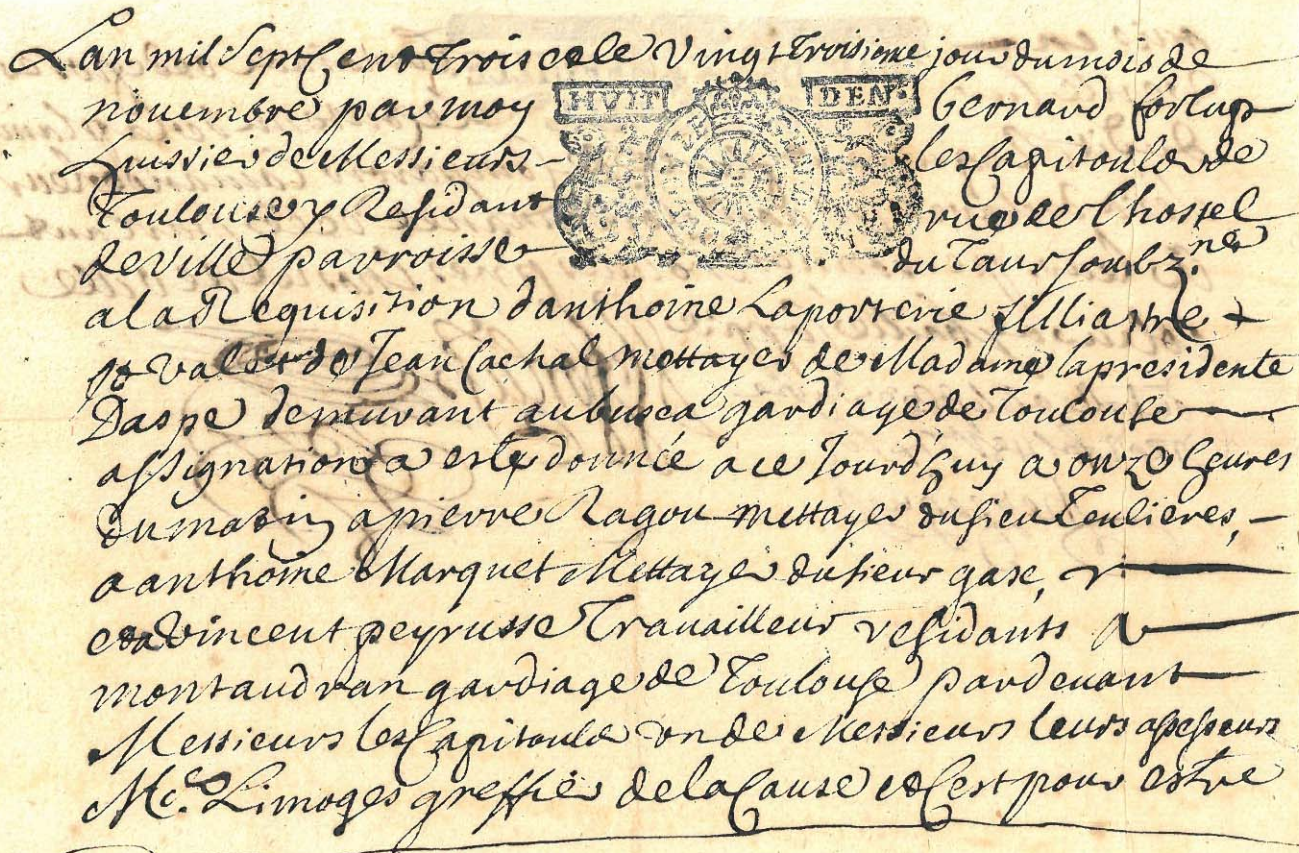 Lan mil Sept Cens Trois et le Vingt Troisieme jour du mois de
novembre par moy HUIT DEN. Bernard forlup
huissier de Messieurs les Capitouls de
Toulouse y Residant rue de lhostel
de ville parroisse du Taur soubz.né
a la Requisition danthoine Laporterie filliastre
et valet de Jean Cachal mettayer de Madame la presidente
Daspe demurant au busca gardiage de Toulouse
assignation a esté donnée a ce Jourdhuy a onze heures
du matin a pierre Ragou mettayer du sieur Teulieres,
a anthoine Marquet Mettayer du sieur gase,
et a Vincent peyrusse Travailleur residants a
montaudran gardiage de Toulouse pardevant
Messieurs les Capitouls ou de Messieurs leurs assesseurs
Me. Limoges greffier de la Cause et Cest pour estre